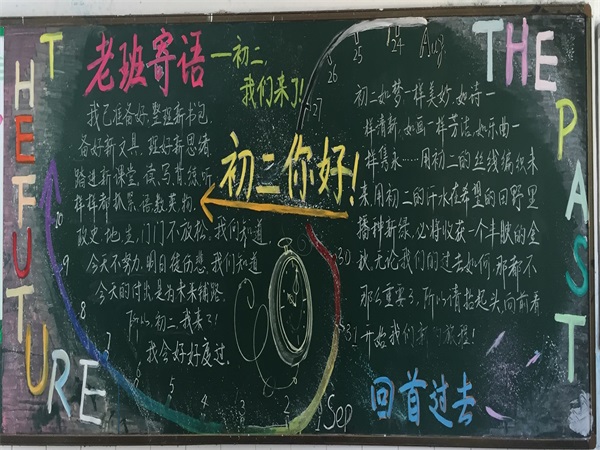 THE FUTURE
老班寄语
—初二，
我们来了！
我已准备好，整理新书包，
备好新文具，理好新思绪
踏进新课堂，读、写、背、练、听
样样都扎紧。语、数、英、物、
政、史、地、生，门门不放松。我们知道，
今天不努力，明日徒伤悲，我们知道
今天的付出是为未来铺路，
所以，初二，我来了！
我会好好度过。
初二你好！
24
Aug
25
26
27
30
31
Sep
2
3
4
5
6
7
8
9
10
THE PAST
初二如梦一样美好，如诗一
样清新，如画一样芳洁，如乐曲一
样隽永……用初二的丝线编织未
来，用初二的汗水在希望的田野里
播种新绿，必将收获一个丰腴的金
秋，无论我们的过去如何，那都不
那么重要了，所以请抬起头，向前看
开始我们新的旅程！
回首过去